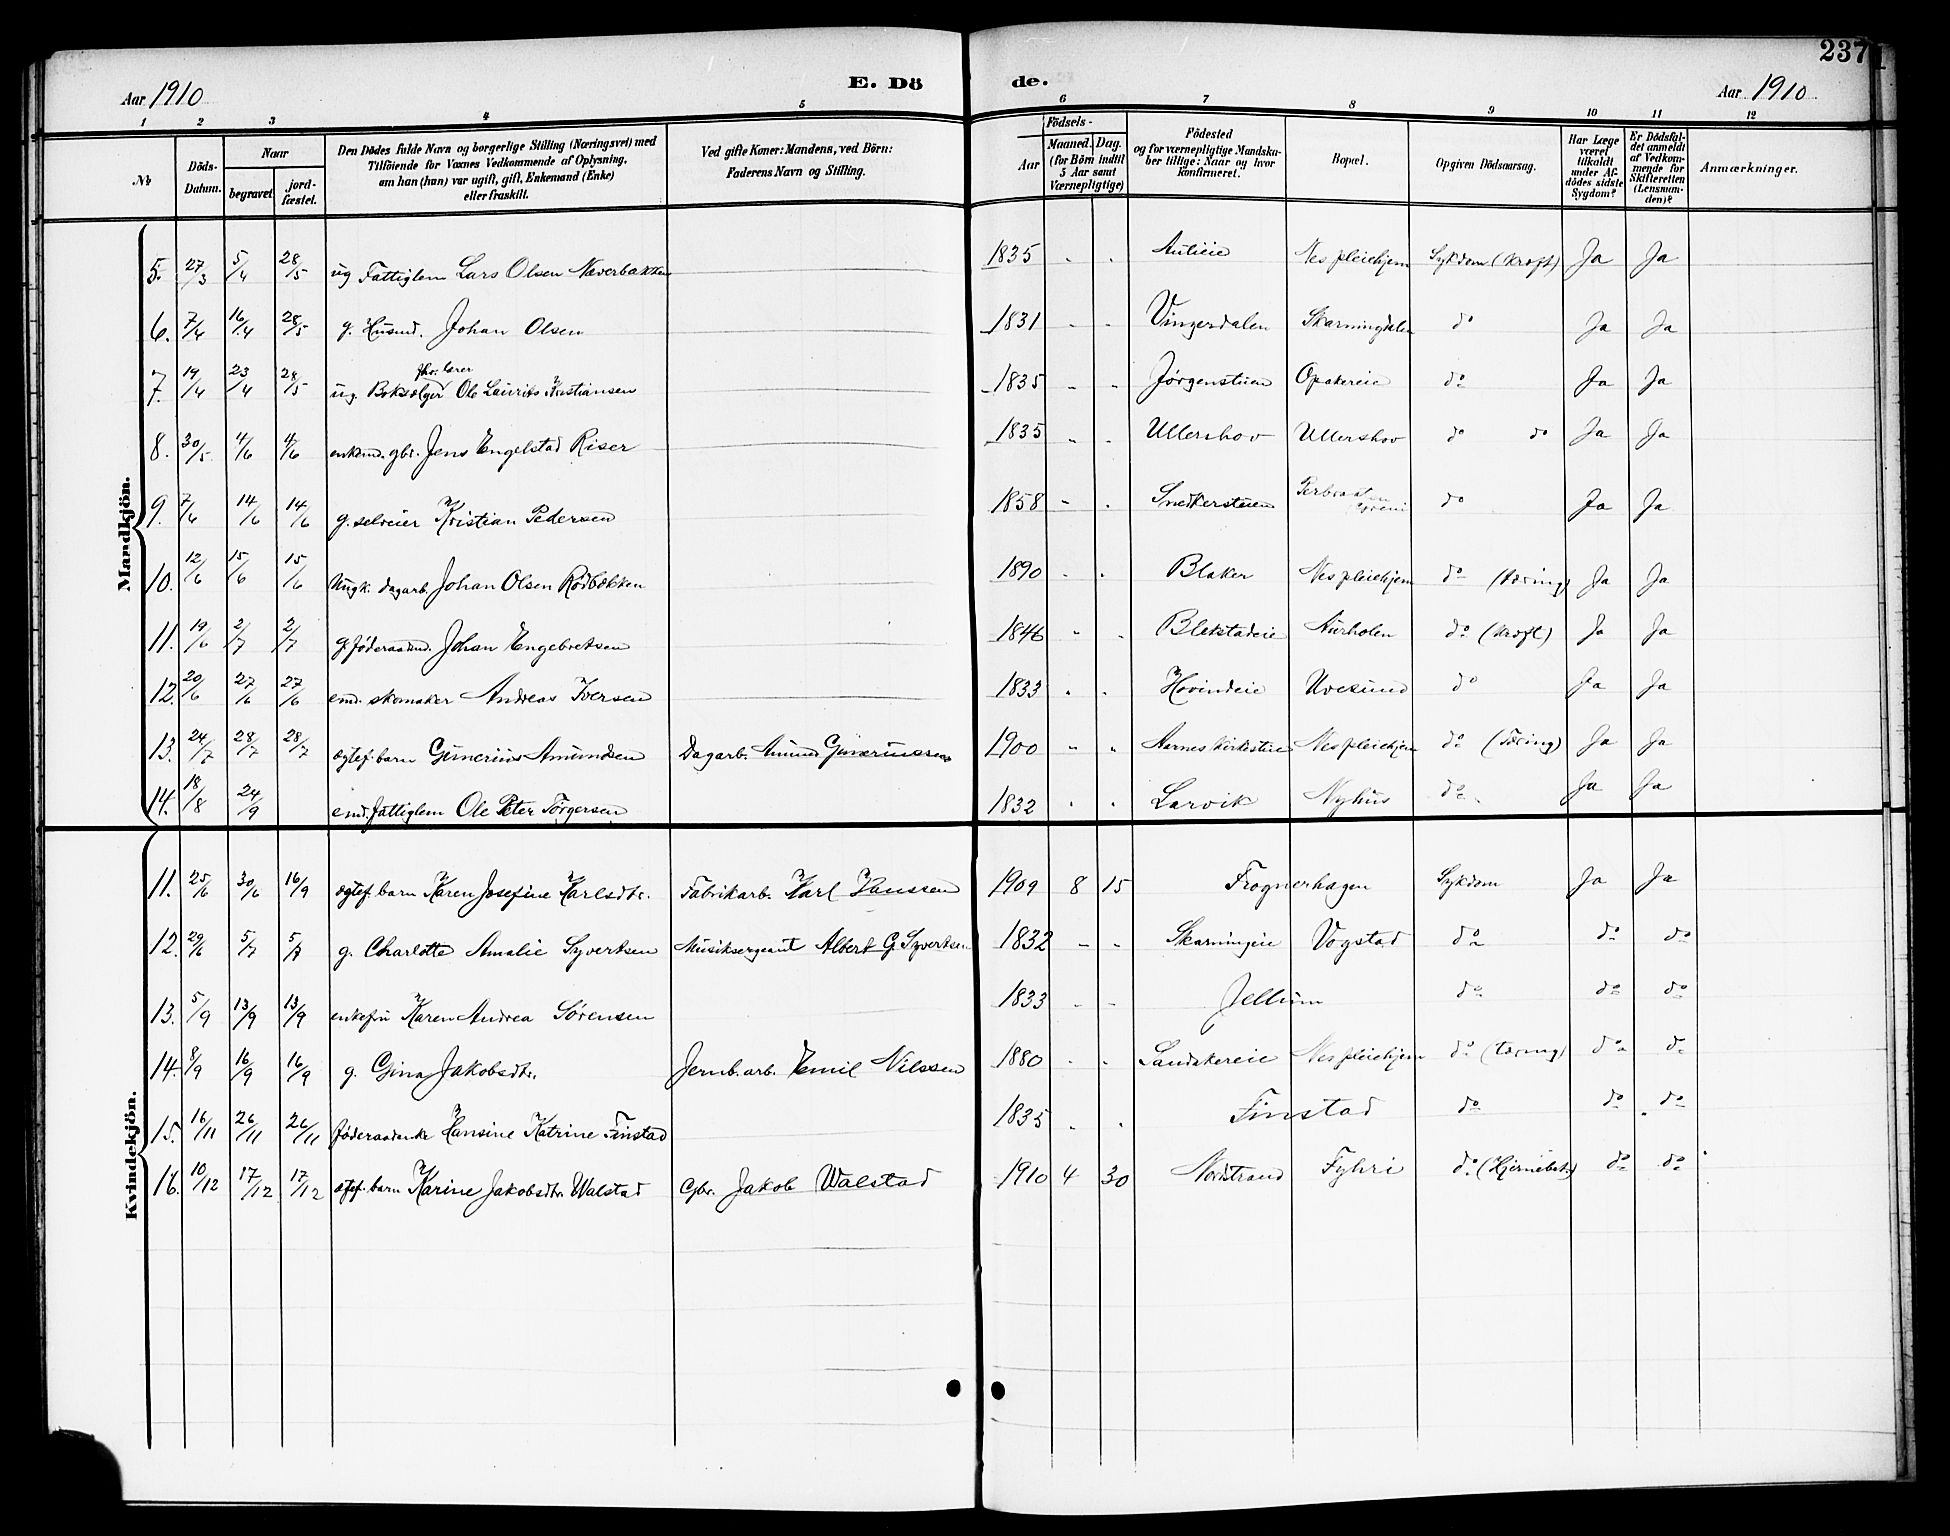 237
Aar 1910 E. Dö de. Aar 1910
1 2 3 4 5 6 7 8 9 10 11 12
№ Döds-Datum. Naar begravet jord-fæstet. Den Dödes fulde Navn og borgerlige Stilling (Næringsvei) med Tilföiende for Voxnes Vedkommende af Oplysning, om han (hun) var ugift, gift, Enkemand (Enke) eller fraskilt. Ved gifte Koner: Mandens, ved Börn: Faderens Navn og Stilling. Födsels- Aar Maaned. Dag. (for Börn indtil 5 Aar samt Værnepligtige) Födested og for værnepligtige Mandska-ber tillige: Naar og hvor konfirmeret. Bopæl. Opgiven Dödsaarsag. Har Læge været tilkaldt under Af-dödes sidste Sygdom? Er Dödsfal-det anmeldt af Vedkom-mende for Skifteretten (Lensman-den)? Anmærkninger.
Mandkjön.
5. 27/3 5/4 28/5 ug Fattiglem Lars Olsen Næverbakken 1835 " " Autieie Nes pleiehjem Sykdom (kræft) Ja Ja
6. 7/4 16/4 28/5 g. Husmd. Johan Olsen 1831 " " Vingerdalen Skarningdalen do Ja Ja
7. 19/4 23/4 28/5 ug. Boksælger fhv. lærer Ole Laurits Kristiansen 1835 " " Jørgenstuen Opakereie do Ja Ja
8. 30/5 4/6 4/6 enkemd. gbr. Jens Engelstad Riser 1835 " " Ullershov Ullershov do do Ja Ja
9. 7/6 14/6 14/6 g. selveier Kristian Pedersen 1858 " " Snedkerstuen do Ja Ja
10. 12/6 15/6 15/6 Ungk. dagarb. Johan Olsen Rödbækken 1890 " " Blaker Nes pleiehjem do (tæring) Ja Ja
11. 19/6 2/7 2/7 g. föderaadmd. Johan Engebretsen 1846 " " Blekstadeie Aurholen do (kræft) Ja Ja
12. 20/6 27/6 27/6 emd. skomaker Andreas Iversen 1833 " " Hovindeie Uvesund do Ja Ja
13. 24/7 28/7 28/7 ægtef. barn Gunerius Amundsen Dagarb. Amund Guneriussen 1900 " " Aarnes kirkestue Nes pleiehjem do (Tæring) Ja Ja
14. 18/8 24/9 emd. fattiglem Ole Peter Torgersen 1832 " " Larvik Nyhus do Ja Ja
Kvindekjön.
11. 25/6 30/6 16/9 ægtef. barn Karen Josefine Karlsdtr. Fabrikarb. Karl Hanssen 1909 8 15 Frognerhagen Sykdom Ja Ja
12. 29/6 5/7 5/7 g. Charlotte Amalie Syvertsen Musiksergeant Albert G. Syvertsen 1832 " " Skarningeie Vogstad do do do
13. 5/9 13/9 13/9 enkefru Karen Andrea Sørensen 1833 " " Jellum do do do
14. 8/9 16/9 16/9 g. Gina Jakobsdtr. Jernb. arb. Emil Nilssen 1880 " " Sandakereie Nes pleiehjem do (tæring) do do
15. 16/11 26/11 26/11 föderaadenke Hansine Katrine Finstad 1835 " " Finstad do do do
16. 10/12 17/12 17/12 ægtef. barn Karine Jakobsdtr. Walstad Gbr. Jakob Walstad 1910 4 30 Nordstrand Fyhri do (Hjernebet.) do do